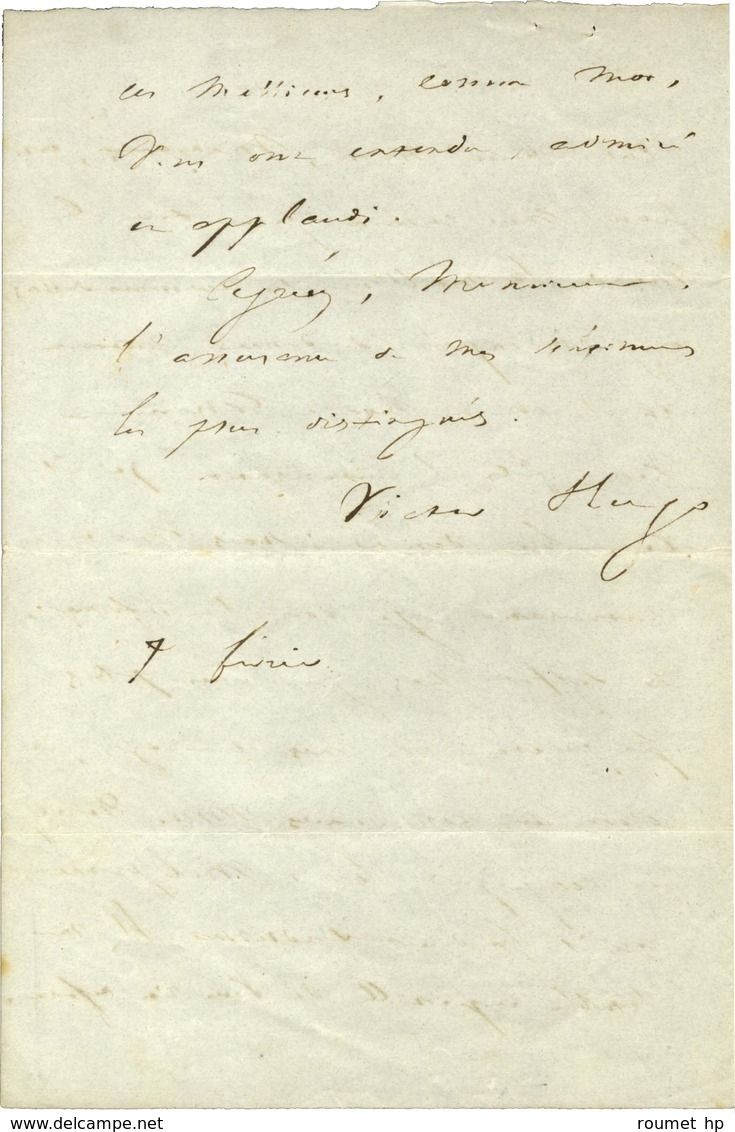 ces Messieurs, comme moi,
vous ont entendu, admiré
et applaudi.
Agréez, Monsieur,
l'assurance de mes sentiments
les plus distingués.
Victor Hugo
7 février
roumet hp